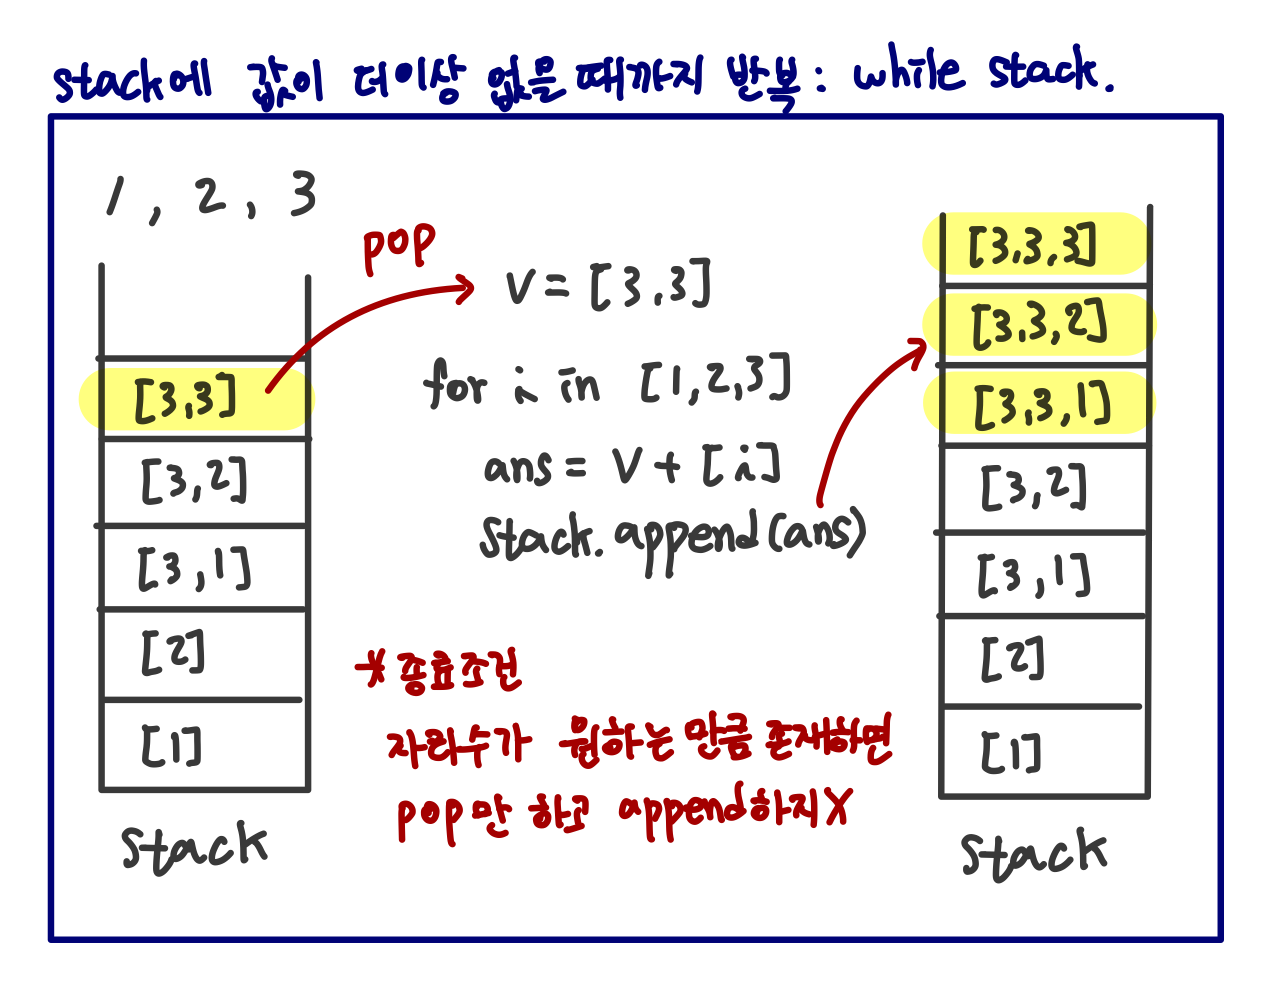 stack에 값이 더이상 없을 때까지 반복: while stack.
1, 2, 3
pop
[3,3]
[3,2]
[3,1]
[2]
[1]
stack
v = [3,3]
for i in [1,2,3]
ans = v + [i]
stack.append(ans)
* 종료조건
자리수가 원하는 만큼 존재하면
pop만 하고 append하지X
[3,3,3]
[3,3,2]
[3,3,1]
[3,2]
[3,1]
[2]
[1]
stack